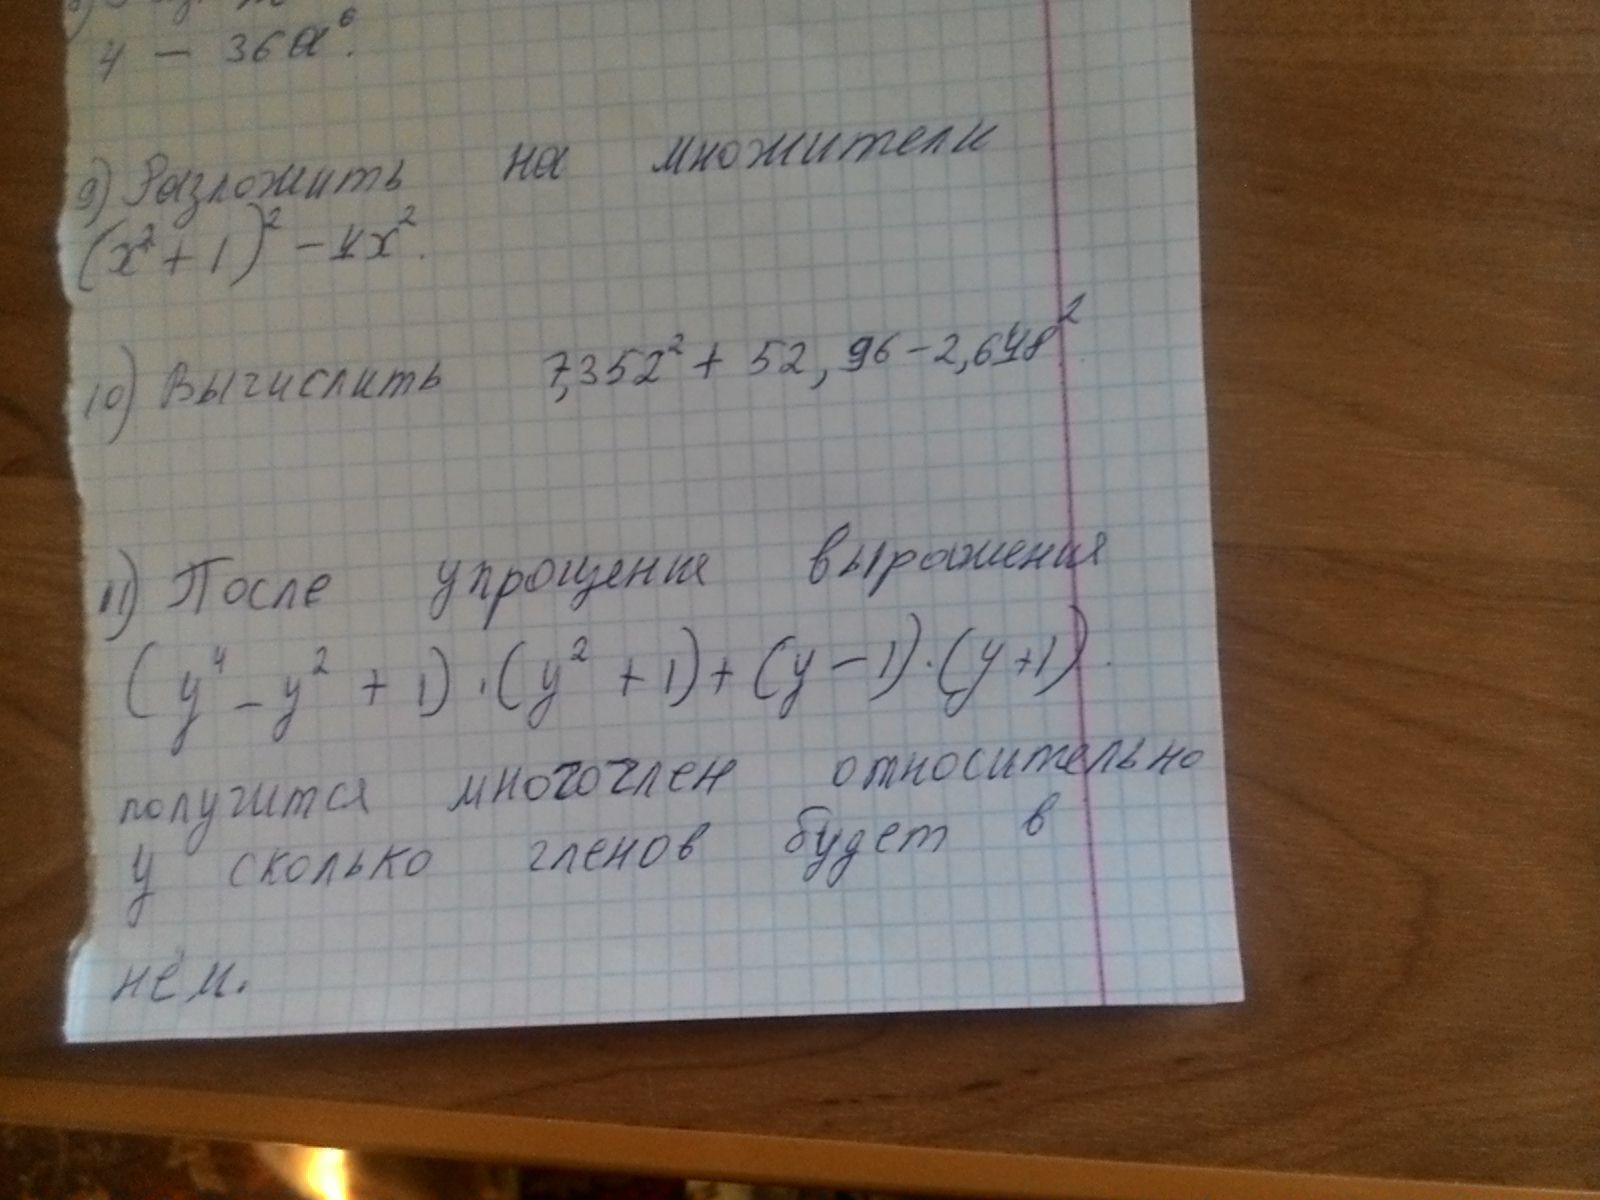 4 − 36a⁶.
9) Разложить на множители
(x² + 1)² − 4x².
10) Вычислить 7,352² + 52,96 − 2,648²
11) После упрощения выражения
(y⁴ − y² + 1) · (y² + 1) + (y − 1) · (y + 1).
получится многочлен относительно
y сколько членов будет в
нём.